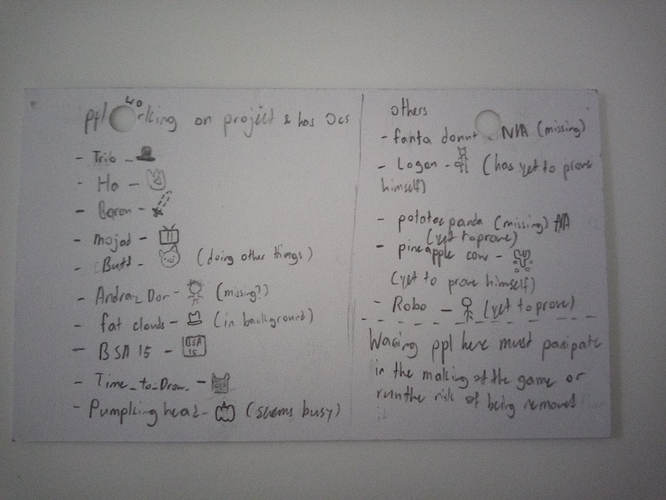 ppl working on project & has Ocs
- Trio -
- Ha -
- Baron -
- mojad -
- Butt - (doing other things)
- Andraz Dor - (missing?)
- fat clouds - (in background)
- BSA 15 - BSA 15
- Time_to_Draw -
- Pumpking head - (seems busy)
others
- fanta donut - N/A (missing)
- Logan - (has yet to prove
himself)
- potatoe panda (missing) N/A
(yet to prove)
- pineapple cow -
(yet to prove himself)
- Robo - (yet to prove)
Waring ppl here must paripate
in the making of the game or
run the risk of being removed